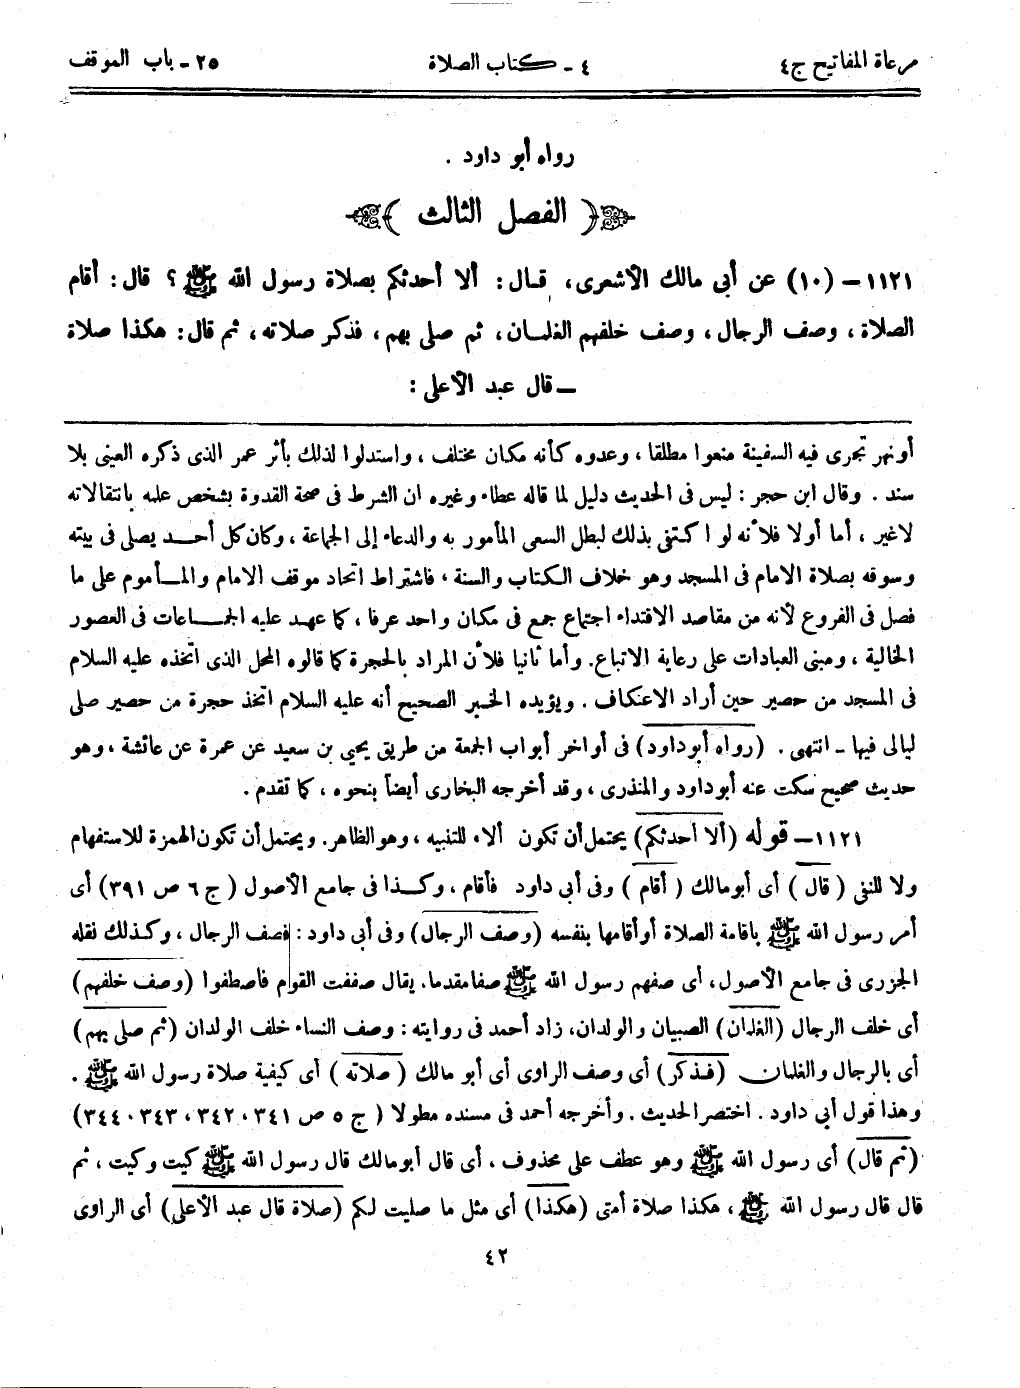 مرعاة المفاتيح ج٤
٤ - كتاب الصلاة
٢٥ - باب الموقف
رواه أبو داود .
( الفصل الثالث )
١١٢١ – (١٠) عن أبى مالك الأشعرى، قال: ألا أحدثكم بصلاة رسول الله ﷺ ؟ قال: أقام
الصلاة، وصف الرجال، وصف خلفهم الغلمان، ثم صلى بهم، فذكر صلاته، ثم قال: هكذا صلاة
– قال عبد الأعلى :
أو نهر تجرى فيه السفينة منعوا مطلقا، وعدوه كأنه مكان مختلف، واستدلوا لذلك بأثر عمر الذى ذكره العينى بلا
سند . وقال ابن حجر : ليس فى الحديث دليل لما قاله عطاء وغيره ان الشرط فى صحة القدوة بشخص علمه بانتقالاته
لا غير، أما أولا فلأنه لو اكتفى بذلك لبطل السعى المأمور به والدعاء إلى الجماعة، وكان كل أحد يصلى فى بيته
وسوقه بصلاة الامام فى المسجد وهو خلاف الكتاب والسنة، فاشتراط اتحاد موقف الامام والمأموم على ما
فصل فى الفروع لأنه من مقاصد الاقتداء اجتماع جمع فى مكان واحد عرفا، كما عهد عليه الجماعات فى العصور
الخالية، ومبنى العبادات على رعاية الاتباع. وأما ثانيا فلأن المراد بالحجرة كما قالوه المحل الذى اتخذه عليه السلام
فى المسجد من حصير حين أراد الاعتكاف . ويؤيده الخبر الصحيح أنه عليه السلام اتخذ حجرة من حصير صلى
ليالى فيها - انتهى . (رواه أبو داود) فى أواخر أبواب الجمعة من طريق يحيى بن سعيد عن عمرة عن عائشة، وهو
حديث صحيح سكت عنه أبو داود والمنذرى، وقد أخرجه البخارى أيضاً بنحوه، كما تقدم .
١١٢١ – قوله (ألا أحدثكم) يحتمل أن تكون ألاء للتنبيه، وهو الظاهر. ويحتمل أن تكون الهمزة للاستفهام
ولا للنفى (قال) أى أبو مالك (أقام) وفى أبى داود فأقام، وكذا فى جامع الأصول (ج ٦ ص ٣٩١) أى
أمر رسول الله ﷺ باقامة الصلاة أو أقامها بنفسه (وصف الرجال) وفى أبى داود: فصف الرجال، وكذلك نقله
الجزرى فى جامع الأصول، أى صفهم رسول الله ﷺ صفا مقدما. يقال صففت القوم فأصطفوا (وصف خلفهم)
أى خلف الرجال (الغلمان) الصبيان والولدان، زاد أحمد فى روايته: وصف النساء خلف الولدان (ثم صلى بهم)
أى بالرجال والغلمان (فذكر) أى وصف الراوى أى أبو مالك (صلاته) أى كيفية صلاة رسول الله ﷺ .
وهذا قول أبى داود . اختصر الحديث . وأخرجه أحمد فى مسنده مطولا (ج ٥ ص ٣٤١، ٣٤٢، ٣٤٣، ٣٤٤)
(ثم قال) أى رسول الله ﷺ وهو عطف على محذوف، أى قال أبو مالك قال رسول الله ﷺ كيت وكيت، ثم
قال قال رسول الله ﷺ، هكذا صلاة أمتى (هكذا) أى مثل ما صليت لكم (صلاة قال عبد الأعلى) أى الراوى
٤٢